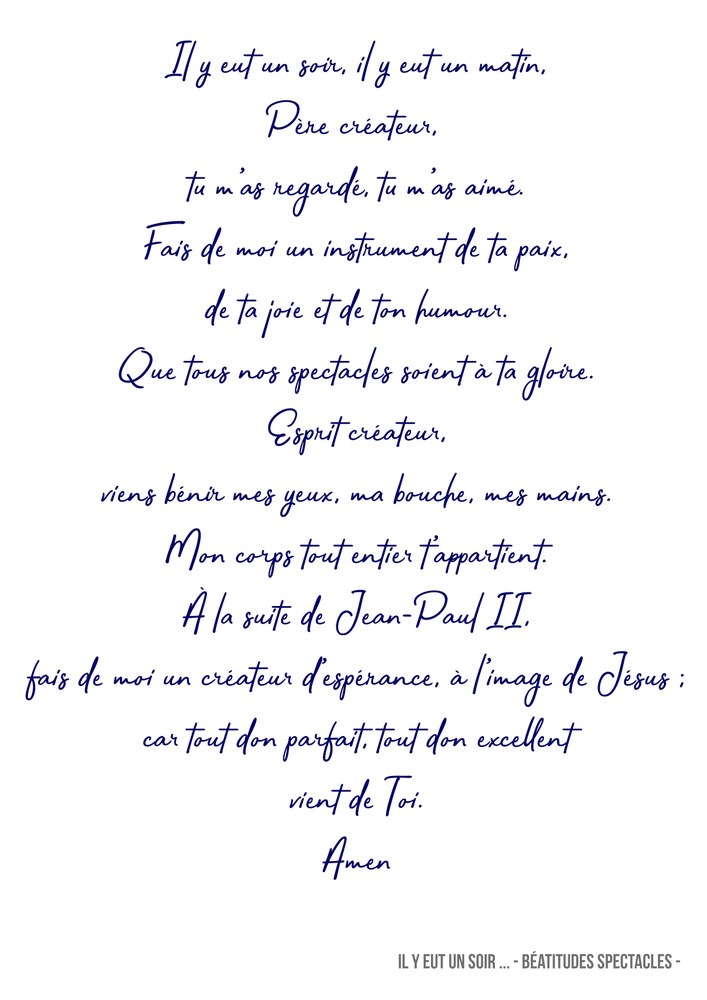 Il y eut un soir, il y eut un matin,
Père créateur,
tu m'as regardé, tu m'as aimé.
Fais de moi un instrument de ta paix,
de ta joie et de ton humour.
Que tous nos spectacles soient à ta gloire.
Esprit créateur,
viens bénir mes yeux, ma bouche, mes mains.
Mon corps tout entier t'appartient.
À la suite de Jean-Paul II,
fais de moi un créateur d'espérance, à l'image de Jésus ;
car tout don parfait, tout don excellent
vient de Toi.
Amen
IL Y EUT UN SOIR ... - BÉATITUDES SPECTACLES -